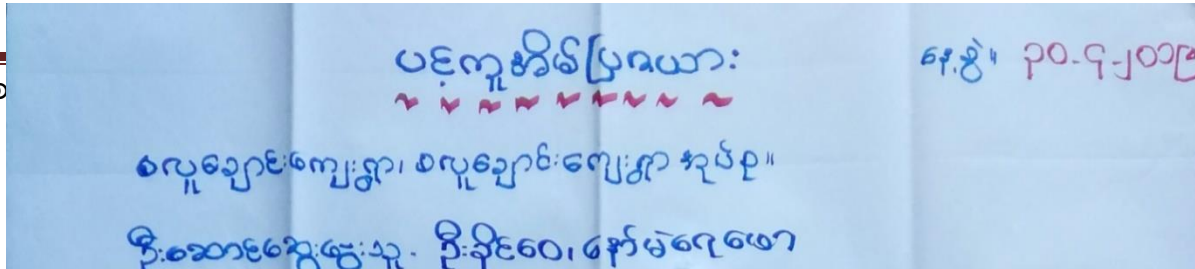 ပင့်ကူအိမ်ပြဇယား
နေ့စွဲ။ ၃၀-၄-၂၀၁
စလူချောင်းကျေးရွာ၊ စလူချောင်းကျေးရွာအုပ်စု။
ဦးဆောင်ဆွေးနွေးသူ - ဦးခိုင်ဝေ၊ နော်မဲရေဖော